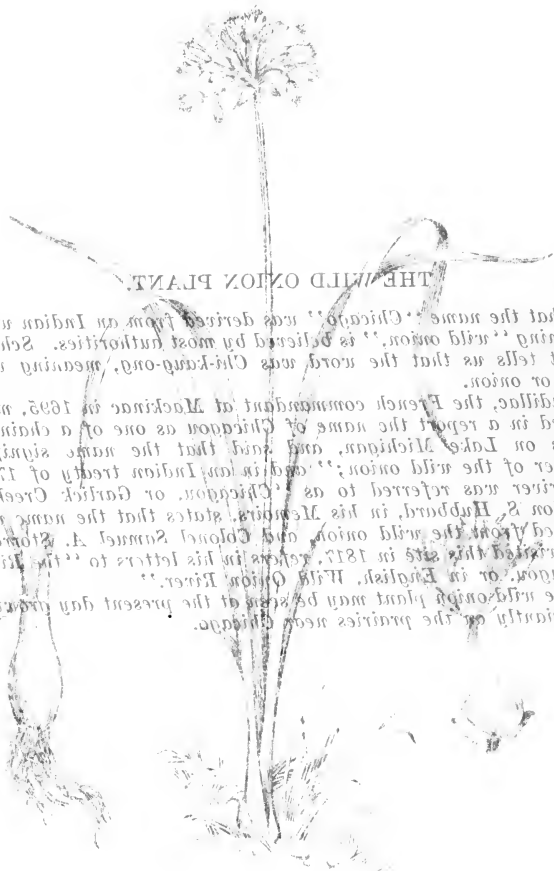 THE WILD ONION PLANT.
hat the name "Chicago" was derived from an Indian w
ning "wild onion," is believed by most authorities. Sch
t tells us that the word was Chi-kaug-ong, meaning
or onion.
dillac, the French commandant at Mackinac in 1695, m
ed in a report the name of Chicagou as one of a chain
s on Lake Michigan, and said that the name signi
er of the wild onion;" and in an Indian treaty of 17
river was referred to as "Chicagou, or Garlick Creek
on S. Hubbard, in his Memoirs, states that the name
ed from the wild onion, and Colonel Samuel A. Storr
visited this site in 1817, refers in his letters to "the Ri
agou, or in English, Wild Onion River."
e wild onion plant may be seen at the present day grow
antly on the prairies near Chicago.